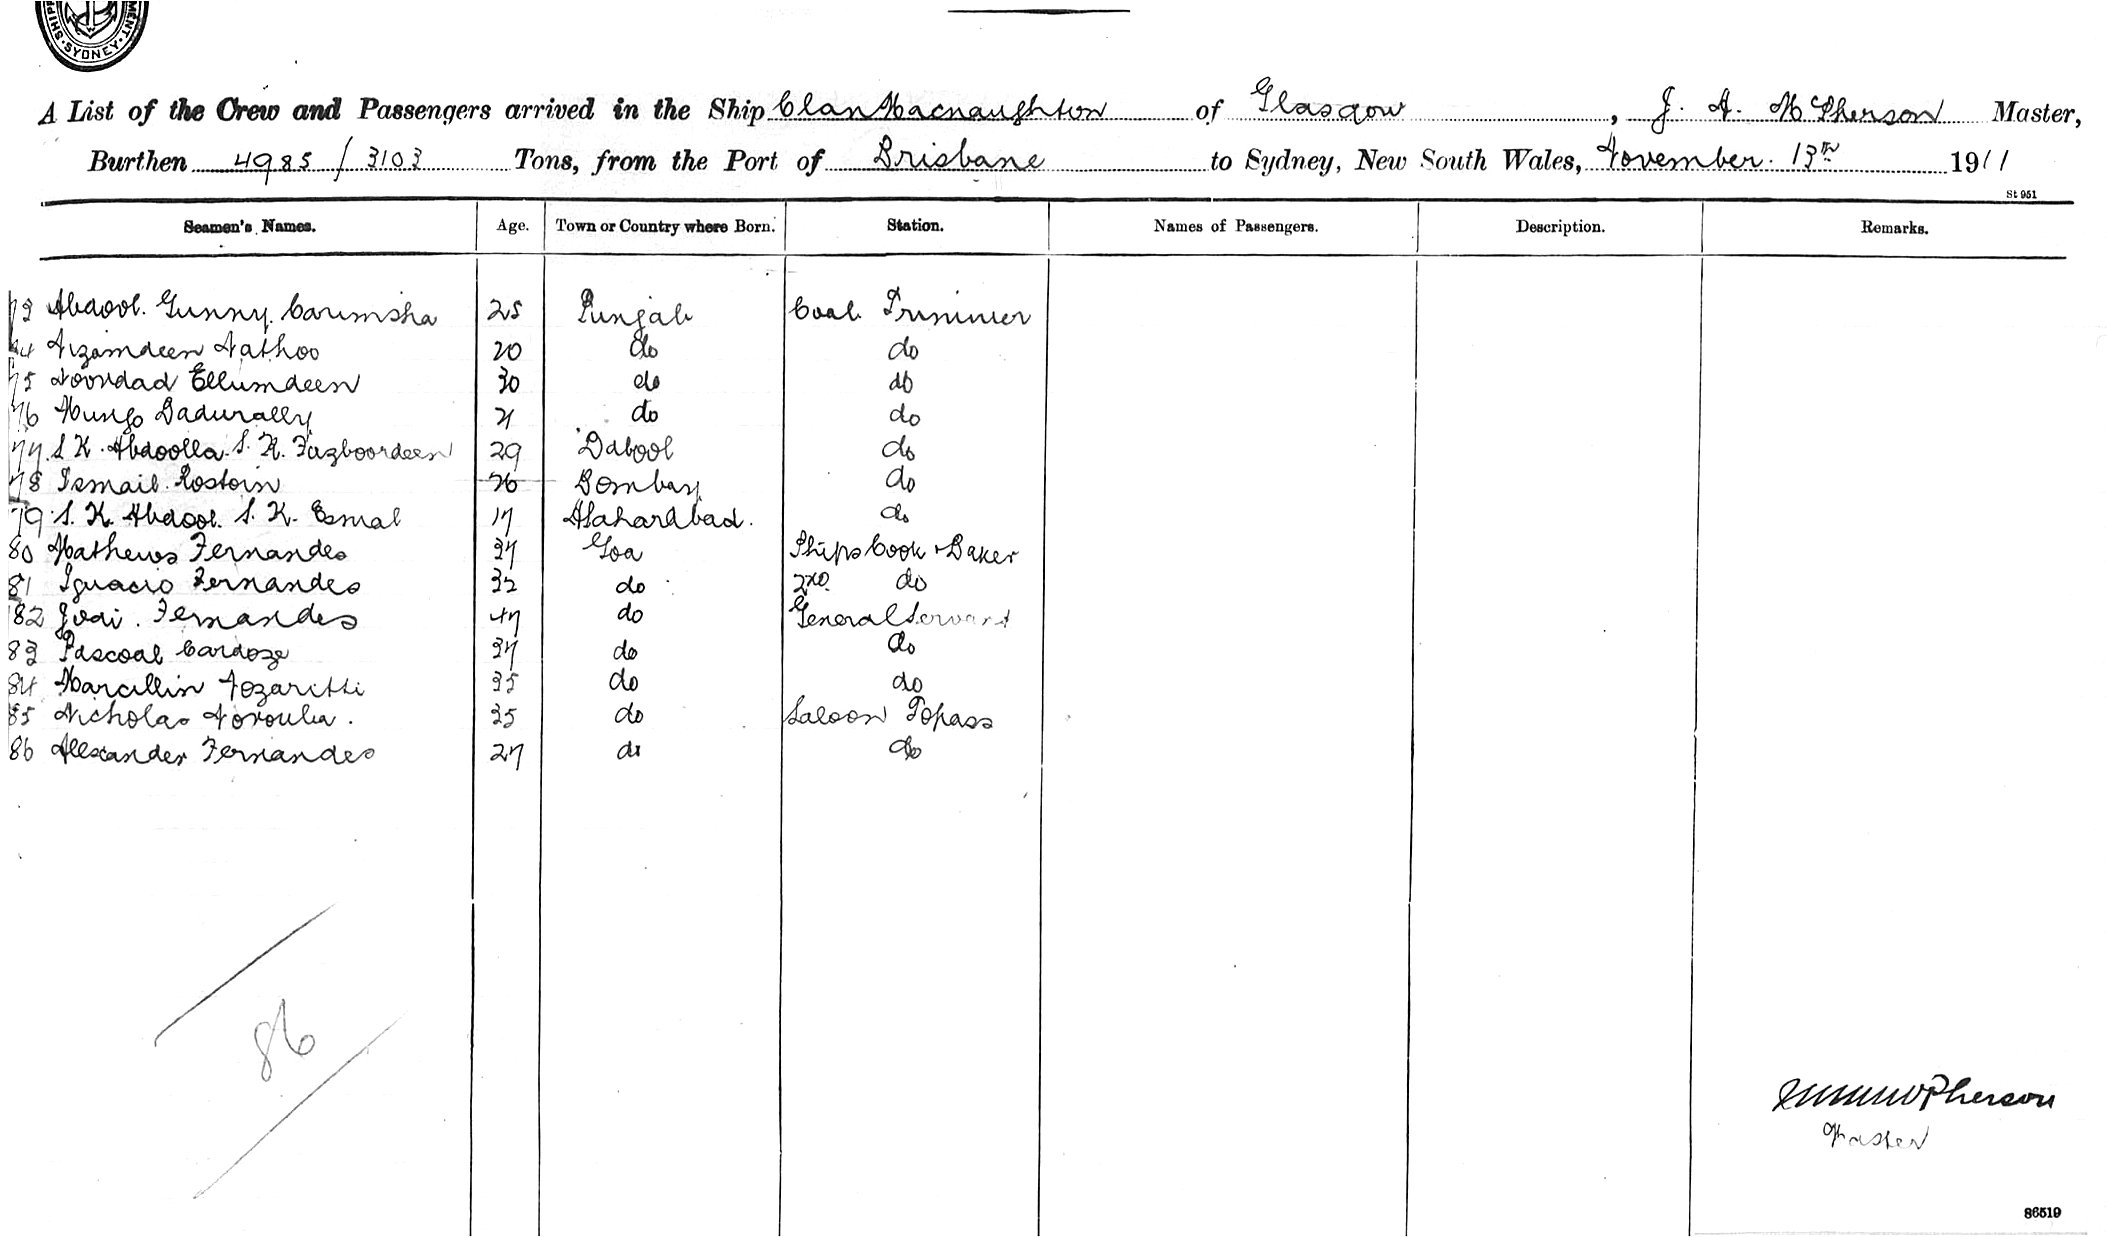 SYDNEY
A List of the Crew and Passengers arrived in the Ship Clan Macnaughton of Glasgow, J. A. McPherson Master,
Burthen 4985 / 3103 Tons, from the Port of Brisbane to Sydney, New South Wales, November 13th 1911
St 951
Seamen's Names. Age. Town or Country where Born. Station. Names of Passengers. Description. Remarks.
73 Abdool Gunny Carimsha 25 Punjab Coal Trimmer
74 Nizamdeen Nathoo 20 do do
75 Noordad Ellumdeen 30 do do
76 Mungo Badurally 21 do do
77 S. K. Abdoolla S. K. Fazboordeen 29 Dabool do
78 Ismail Rostoin 26 Bombay do
79 S. K. Abdool S. K. Esmal 17 do
80 Mathews Fernandes 37 Goa Ships Cook & Baker
81 Ignacio Fernandes 32 do 2nd do
82 Fernandes 47 do General Servant
83 Pascoal Cardoze 37 do do
84 Marcillin 35 do do
85 Nicholas 35 do Saloon Topass
86 Allexander Fernandes 27 do do
86
McPherson
Master
86519